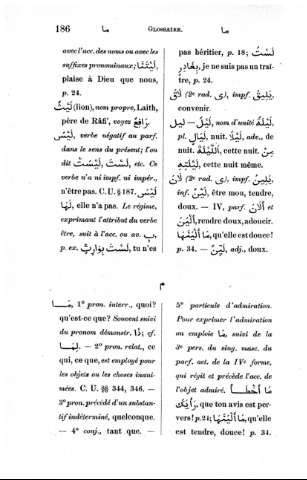 186 ما GLOSSAIRE. ما
avec l'acc. des noms ou avec les
suffixes pronominaux; لَيْتَنَا,
plaise à Dieu que nous,
p. 24.
لَيْثٌ (lion), nom propre, Laith,
père de Râfi', voyez رَافِعٌ.
لَيْسَ, verbe négatif au parf.
dans le sens du présent; l'on
dit لَسْتَ, لَيْسَتْ, etc. Ce
verbe n'a ni impf. ni impér.,
n'être pas. C. U. § 187. لَيْسَ
لَهَا, elle n'a pas. Le régime,
exprimant l'attribut du verbe
être, suit à l'acc. ou av. بِ,
p. ex. لَسْتَ بِوَارِثٍ, tu n'es
pas héritier, p. 18; لَسْتُ
بِغَادِرٍ, je ne suis pas un traî-
tre, p. 24.
لَاقَ (2e rad. ى), impf. يَلِيقُ,
convenir.
لَيْلٌ — لَيْلَةٌ, nom d'unité
pl. لَيَالٍ, nuit. لَيْلًا, adv., de
nuit. اللَّيْلَةَ, cette nuit. مِنْ
لَيْلَتِهِ, cette nuit même.
لَانَ (2e rad. ى), impf. يَلِينُ,
inf. لِينٌ, être mou, tendre,
doux. — IV. parf. أَلَانَ et
أَلْيَنَ, rendre doux, adoucir.
مَا أَلْيَنَهَا, qu'elle est douce!
p. 34. — لَيِّنٌ, adj., doux.
م
مَا, 1° pron. interr., quoi?
qu'est-ce que? Souvent suivi
du pronom démonstr. ذَا; cf.
لِمَا. — 2° pron. relat., ce
qui, ce que, est employé pour
les objets ou les choses inani-
mées. C. U. §§ 344, 346. —
3° pron. précédé d'un substan-
tif indéterminé, quelconque.
— 4° conj., tant que. —
5° particule d'admiration.
Pour exprimer l'admiration
on emploie مَا, suivi de la
3e pers. du sing. masc. du
parf. act. de la IVe forme,
qui régit et précède l'acc. de
l'objet admiré. مَا أَخْطَأَ
رَأْيَكَ, que ton avis est per-
vers! p. 24; مَا أَلْيَنَهَا, qu'elle
est tendre, douce! p. 34.